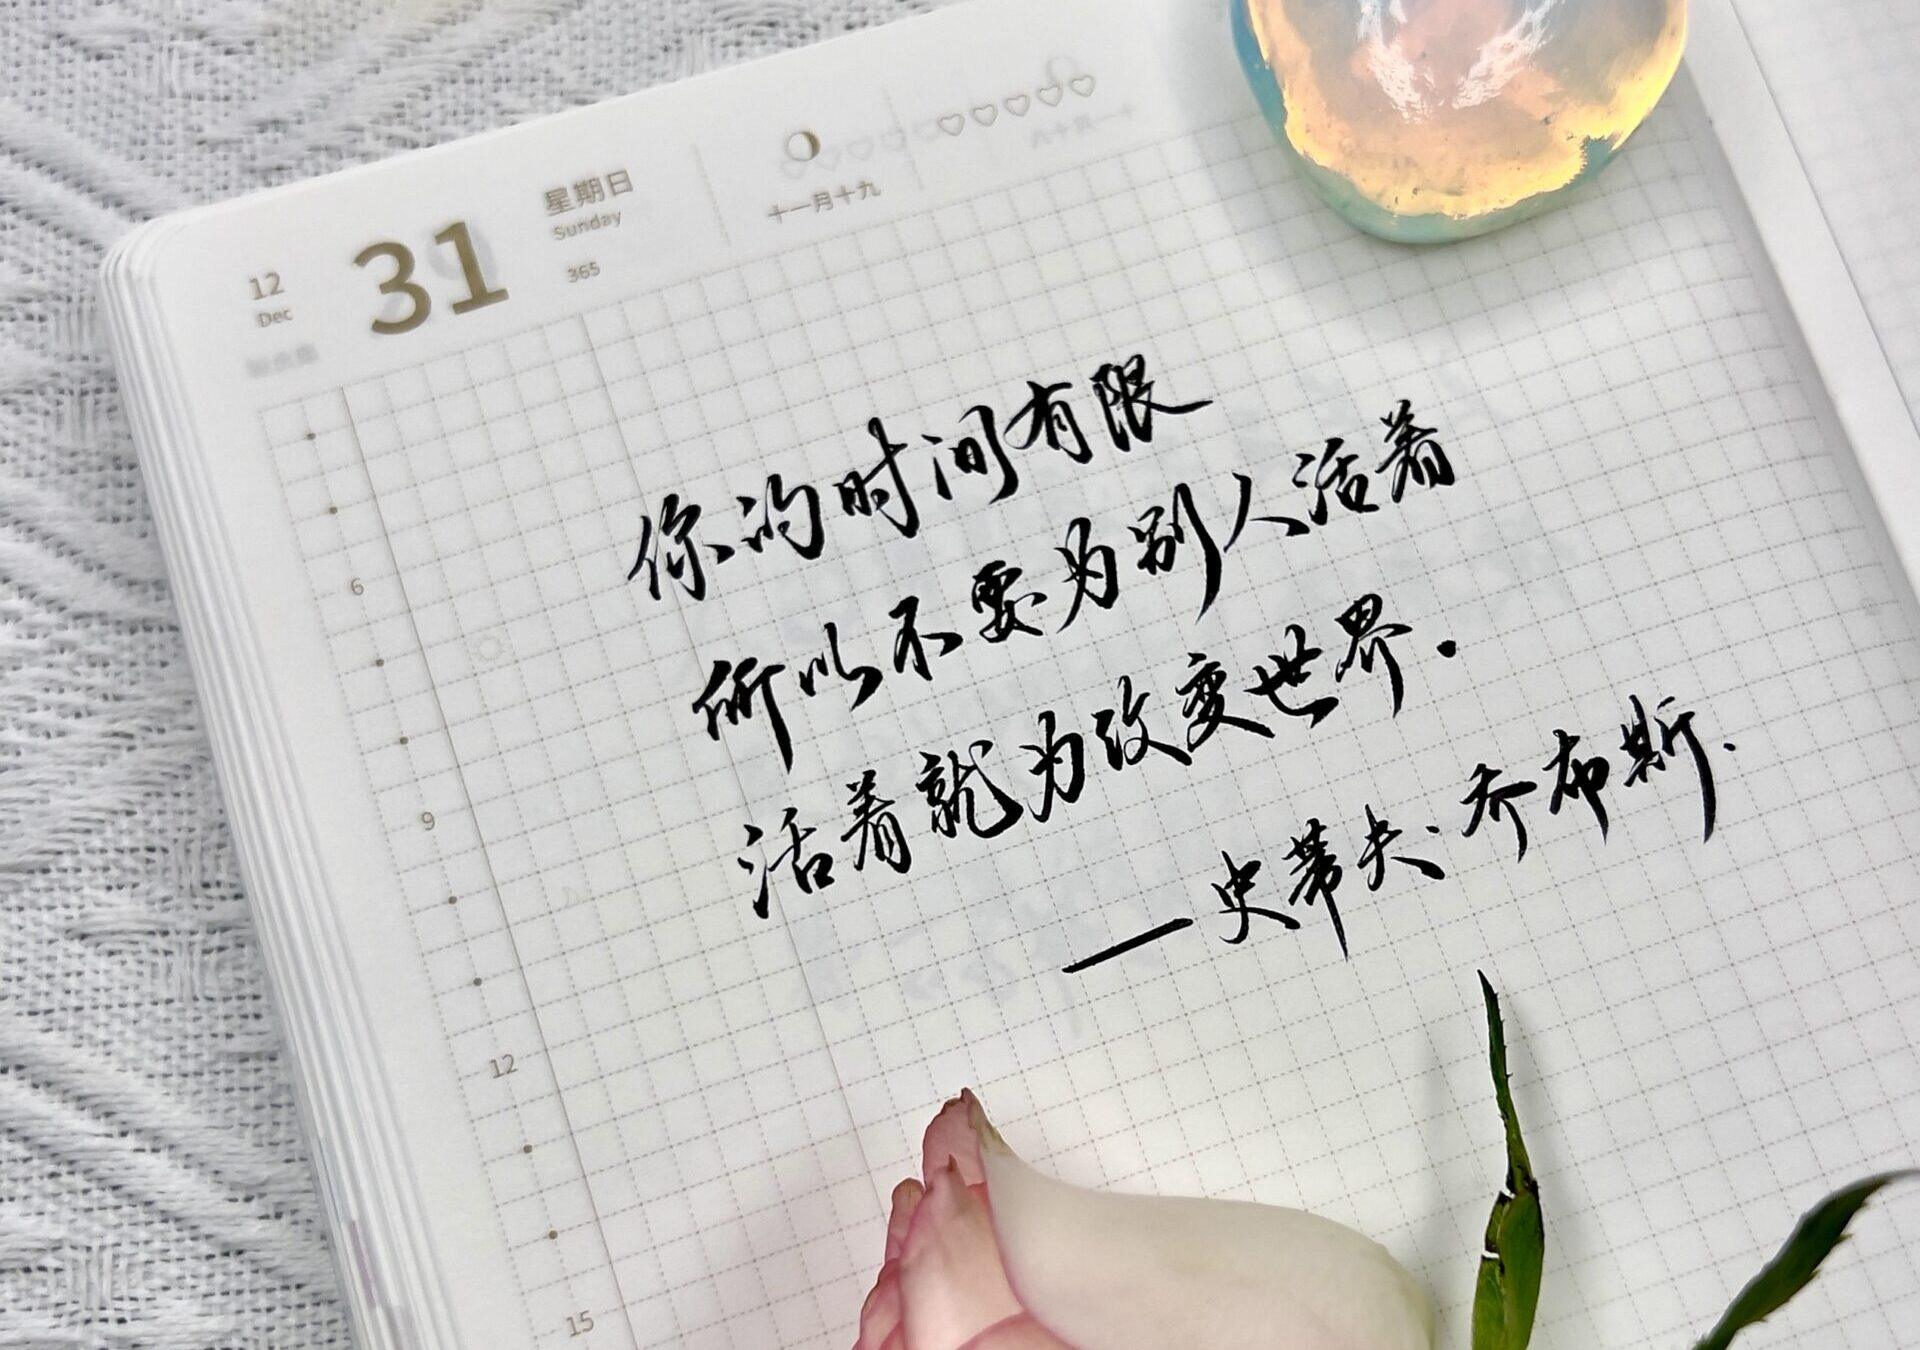 12
Dec
31
星期日
Sunday
365
十一月十九
你的时间有限
所以不要为别人活着
活着就为改变世界.
—史蒂夫·乔布斯.
6
9
12
15